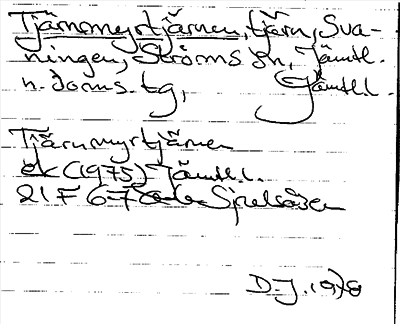 Tjärnmyrtjärnen, tjärn, Sva-
ningen, Ströms sn, Jämtl.
n. doms. tg, Jämtl. l.
Tjärnmyrtjärnen
ek (1975) Jämtl. l.
21 F 6-7 Sjoutnäset
D.J. 1978